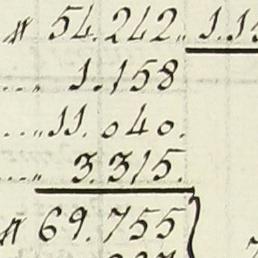 # 54.242.. 1.15
.... 1.158
.... 11.040.
.... 3.315.
# 69.755